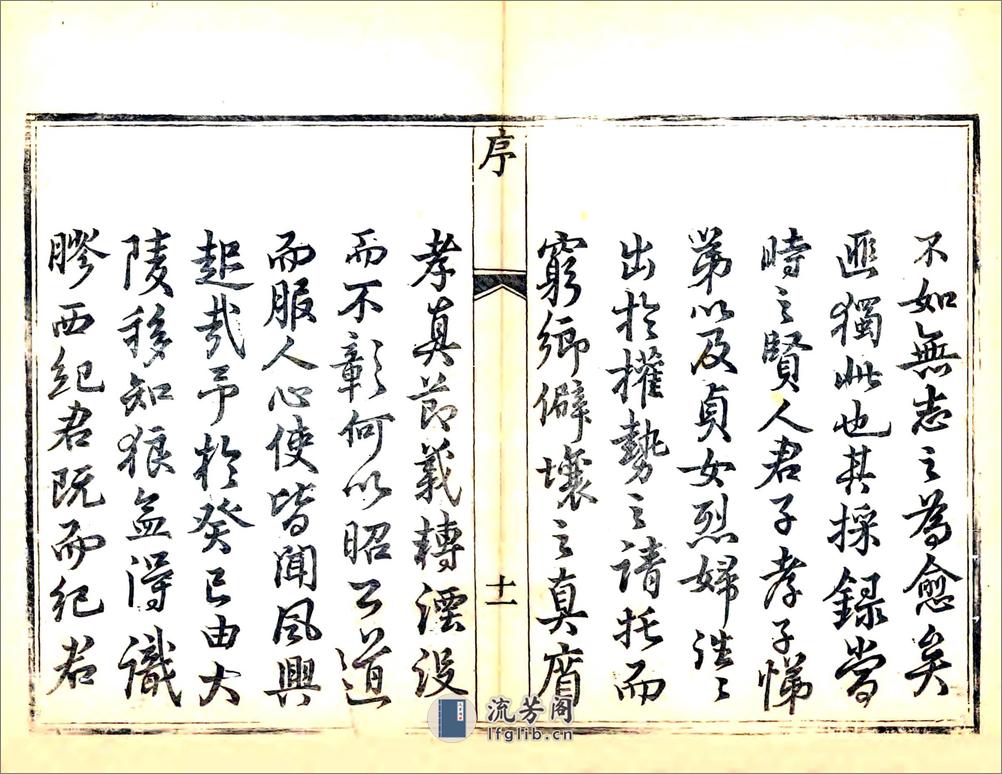 不如無志之為愈矣
匪獨此也其採録當
時之賢人君子孝子悌
弟以及貞女烈婦往〻
出於權勢之請托而
窮鄉僻壤之真
序
十一
孝真節義轉湮没
而不彰何以昭公道
而服人心使皆聞風興
起哉予於癸已由大
陵移知狼孟得識
膠西紀君既而紀君
流芳阁
lfglib.cn